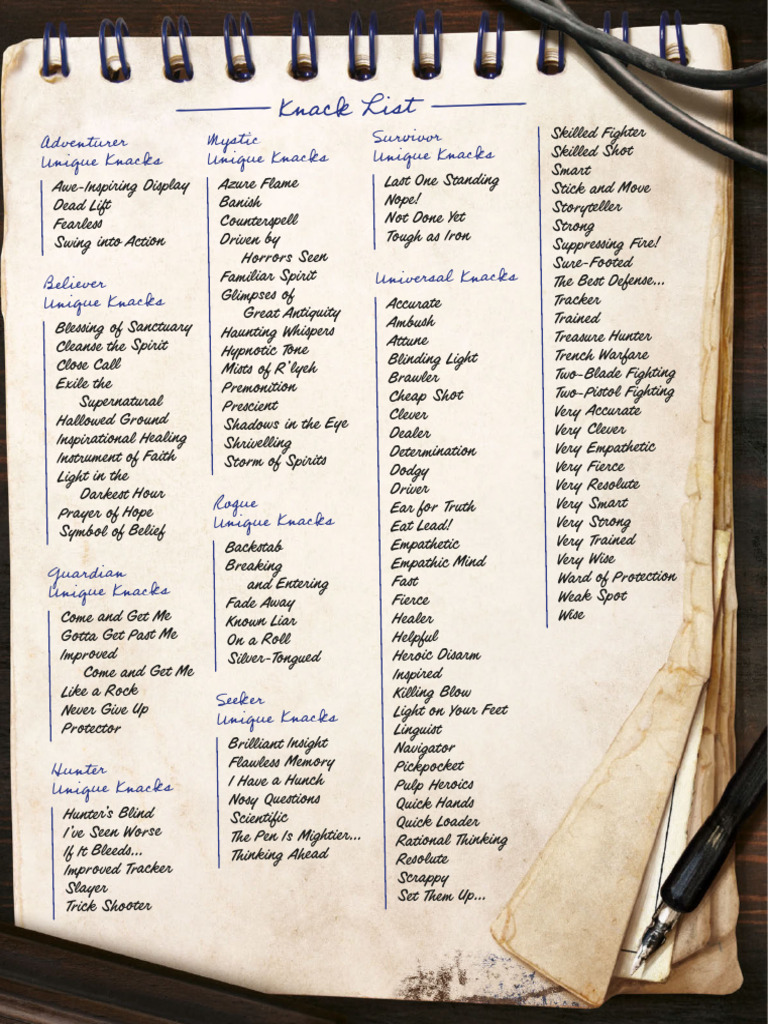 Knack List
Adventurer
Unique Knacks
Awe-Inspiring Display
Dead Lift
Fearless
Swing into Action
Believer
Unique Knacks
Blessing of Sanctuary
Cleanse the Spirit
Close Call
Exile the
Supernatural
Hallowed Ground
Inspirational Healing
Instrument of Faith
Light in the
Darkest Hour
Prayer of Hope
Symbol of Belief
Guardian
Unique Knacks
Come and Get Me
Gotta Get Past Me
Improved
Come and Get Me
Like a Rock
Never Give Up
Protector
Hunter
Unique Knacks
Hunter's Blind
I've Seen Worse
If It Bleeds...
Improved Tracker
Slayer
Trick Shooter
Mystic
Unique Knacks
Azure Flame
Banish
Counterspell
Driven by
Horrors Seen
Familiar Spirit
Glimpses of
Great Antiquity
Haunting Whispers
Hypnotic Tone
Mists of R'lyeh
Premonition
Prescient
Shadows in the Eye
Shrivelling
Storm of Spirits
Rogue
Unique Knacks
Backstab
Breaking
and Entering
Fade Away
Known Liar
On a Roll
Silver-Tongued
Seeker
Unique Knacks
Brilliant Insight
Flawless Memory
I Have a Hunch
Nosy Questions
Scientific
The Pen Is Mightier...
Thinking Ahead
Survivor
Unique Knacks
Last One Standing
Nope!
Not Done Yet
Tough as Iron
Universal Knacks
Accurate
Ambush
Attune
Blinding Light
Brawler
Cheap Shot
Clever
Dealer
Determination
Dodgy
Driver
Ear for Truth
Eat Lead!
Empathetic
Empathic Mind
Fast
Fierce
Healer
Helpful
Heroic Disarm
Inspired
Killing Blow
Light on Your Feet
Linguist
Navigator
Pickpocket
Pulp Heroics
Quick Hands
Quick Loader
Rational Thinking
Resolute
Scrappy
Set Them Up...
Skilled Fighter
Skilled Shot
Smart
Stick and Move
Storyteller
Strong
Suppressing Fire!
Sure-Footed
The Best Defense...
Tracker
Trained
Treasure Hunter
Trench Warfare
Two-Blade Fighting
Two-Pistol Fighting
Very Accurate
Very Clever
Very Empathetic
Very Fierce
Very Resolute
Very Smart
Very Strong
Very Trained
Very Wise
Ward of Protection
Weak Spot
Wise